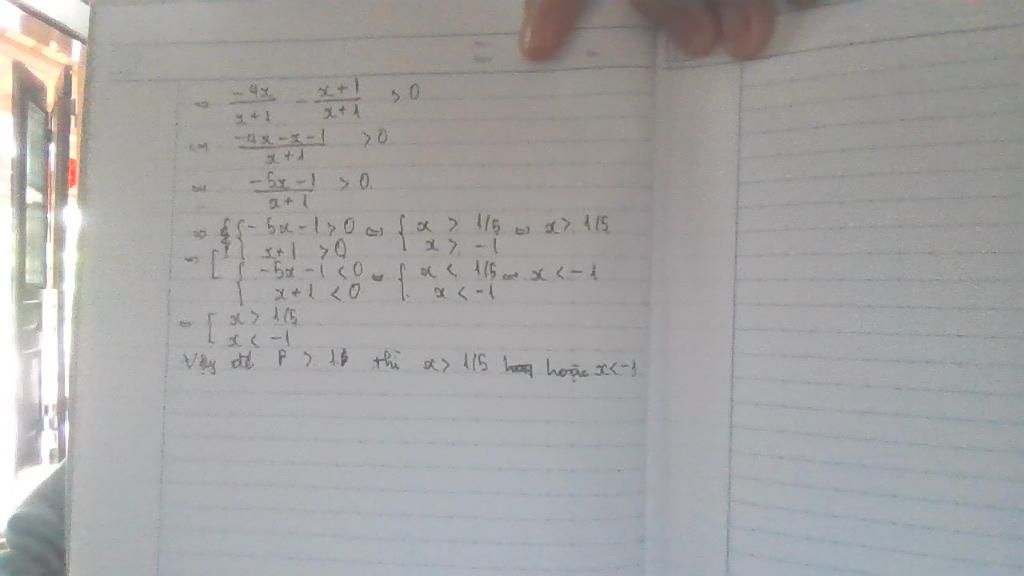 ⇔ -4x/x+1 - x+1/x+1 > 0
⇔ -4x-x-1/x+1 > 0
⇔ -5x-1/x+1 > 0.
⇔ { -5x-1 > 0 ⇔ { x > 1/5 ⇔ x > 1/5
x+1 > 0 x > -1
⇔ [ { -5x-1 < 0 ⇔ { x < 1/5 ⇔ x < -1
x+1 < 0 x < -1
⇔ [ x > 1/5
x < -1
Vậy để P > 1 thì x > 1/5 hoặc x < -1